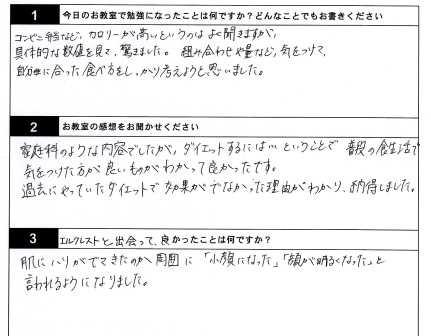 1 今日のお教室で勉強になったことは何ですか？どんなことでもお書きください
コンビニ弁当など、カロリーが高いというのはよく聞きますが、
具体的な数値を見て、驚きました。組み合わせや量など、気をつけて、
目的に合った食べ方をしっかり考えようと思いました。
2 お教室の感想をお聞かせください
家庭科のような内容でしたが、ダイエットするには…ということで 普段の食生活で
気をつけた方が良いものがわかって良かったです。
過去にやっていたダイエットで効果がでなかった理由がわかり、納得しました。
3 エルクレストと出会って、良かったことは何ですか？
肌にハリがでてきたのか 周囲に「小顔になった」「顔が明るくなった」と
言われるようになりました。